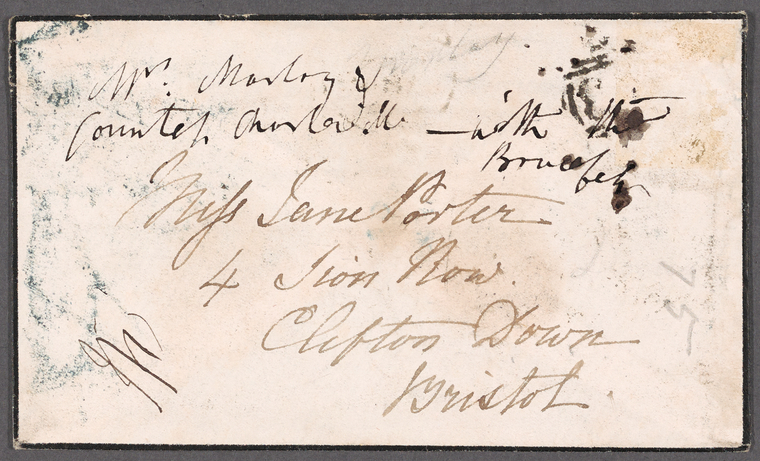 Mrs. Marley &
Countess Charleville — with the
Miss Jane Porter
4 Sion Row.
Clifton Down
Bristol.